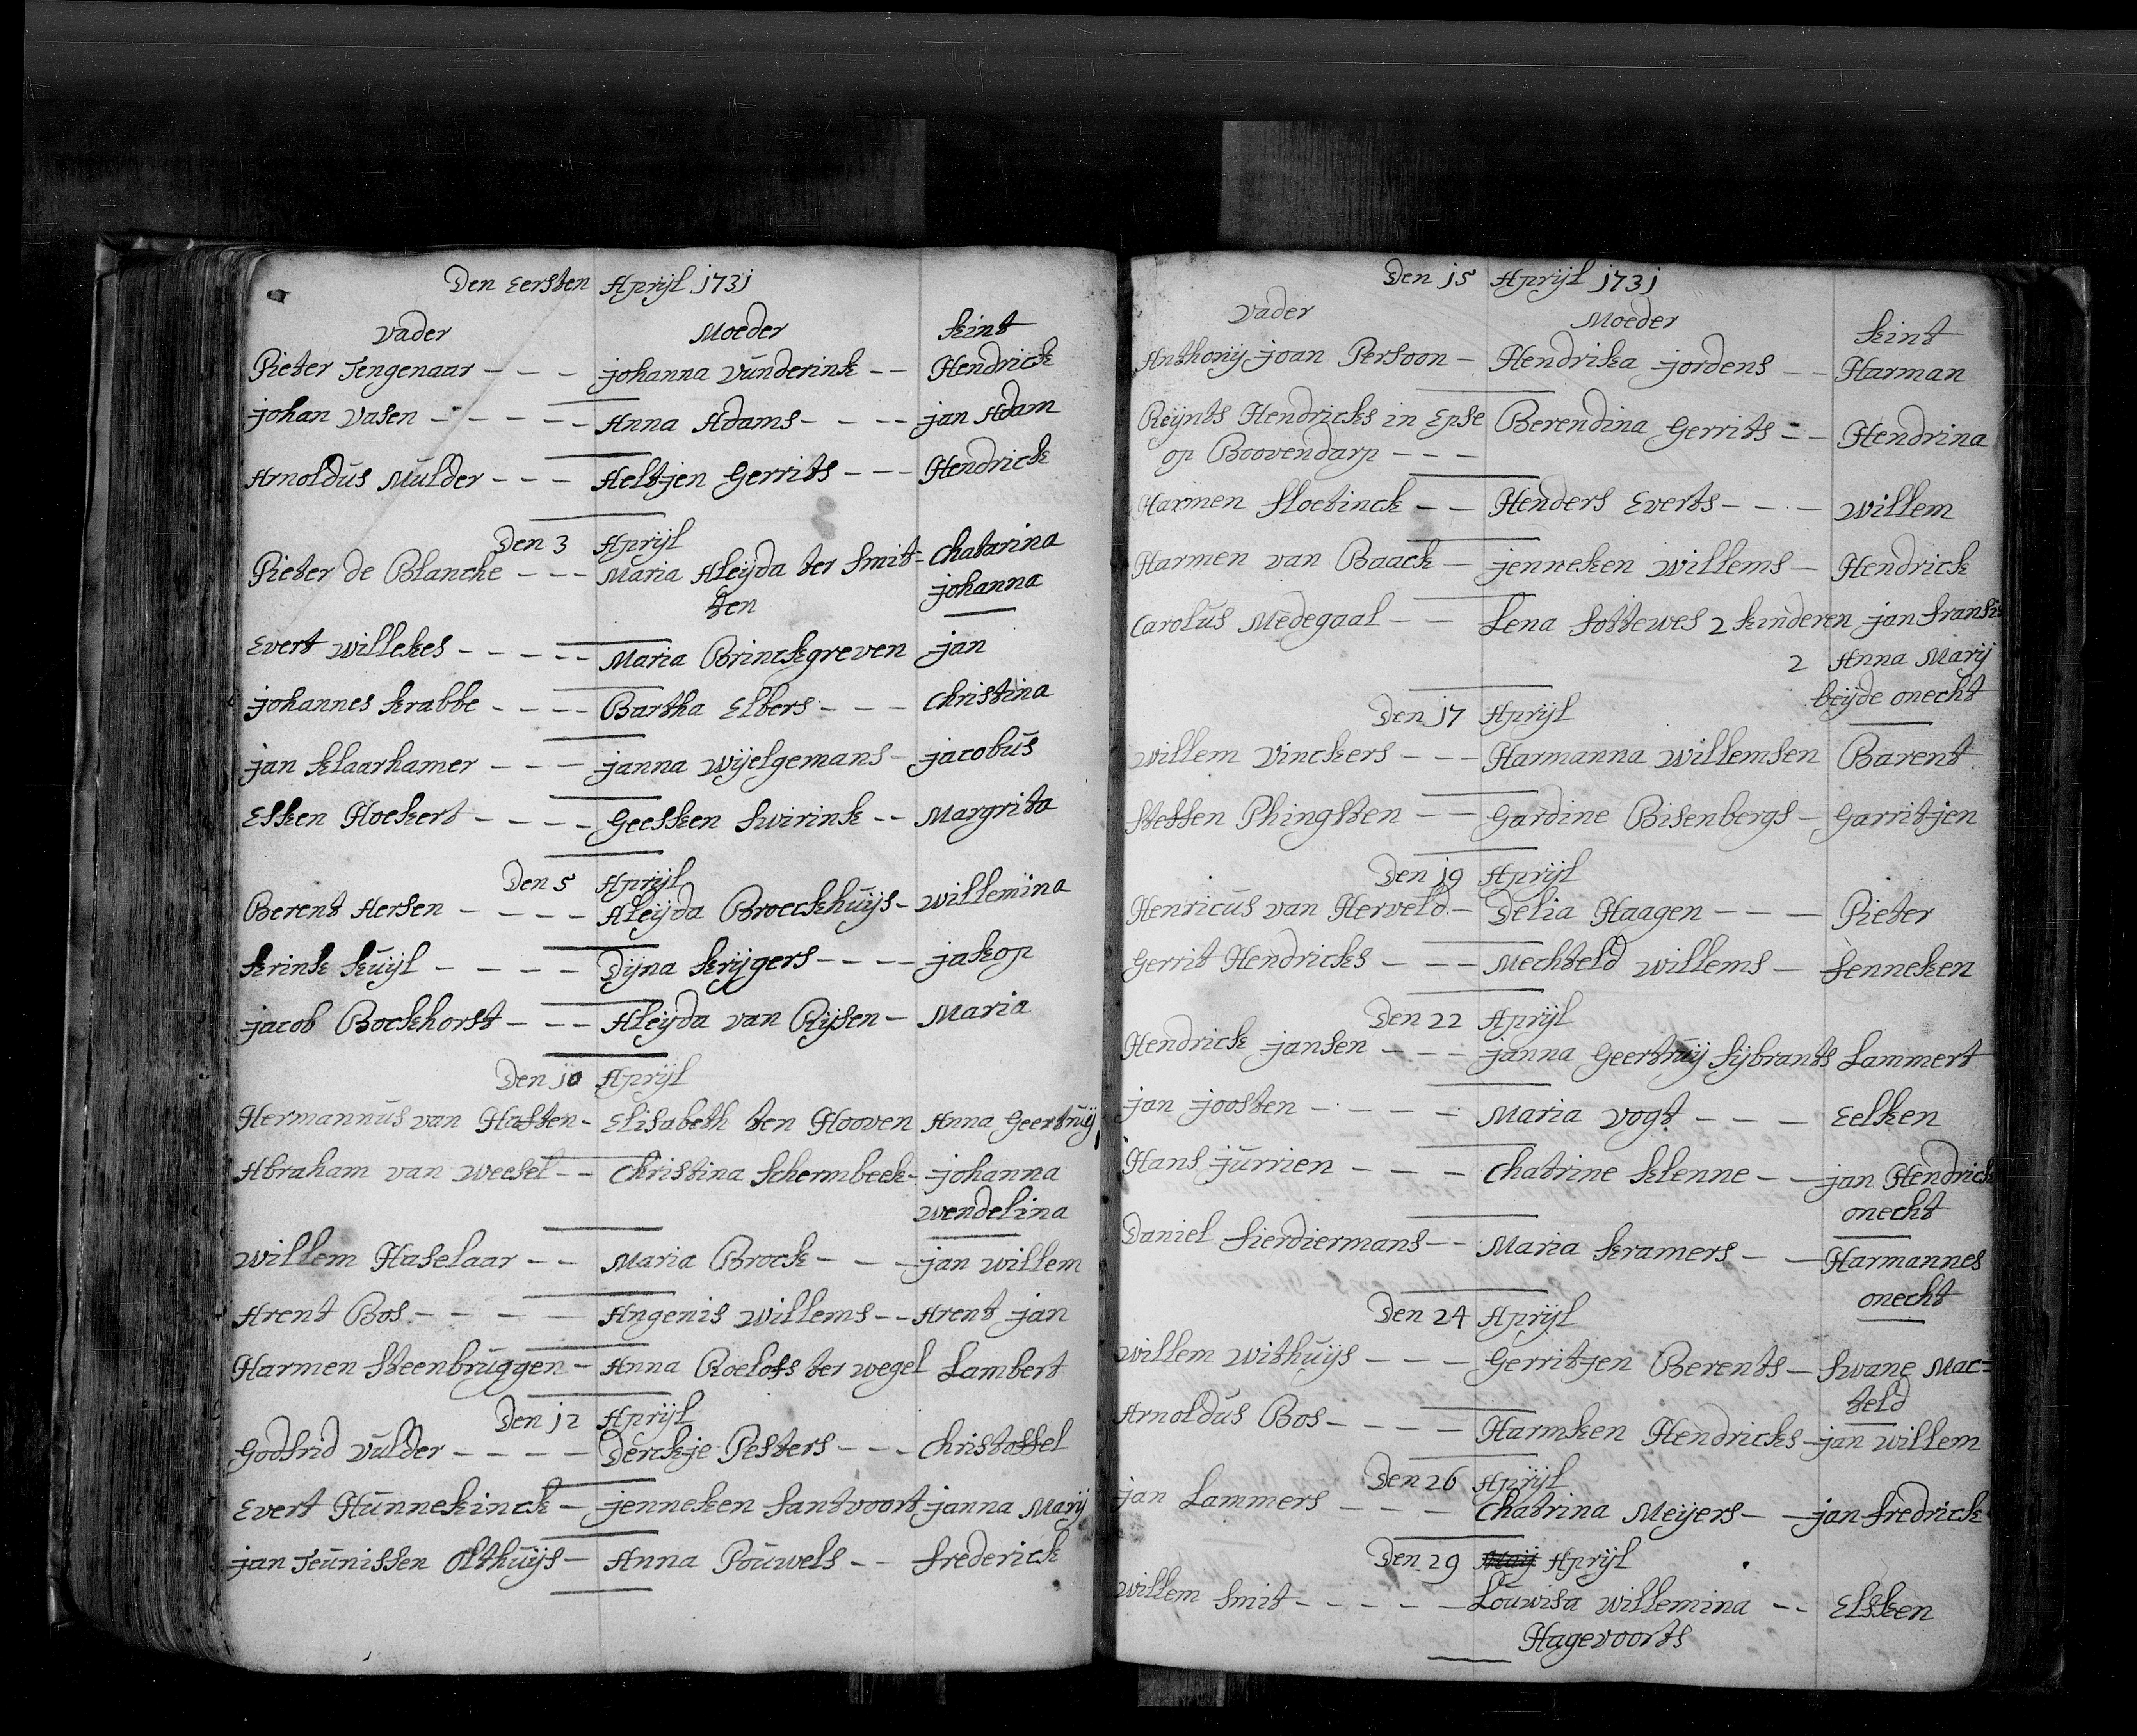 Den Eersten Aprijl 1731
Vader Moeder kint
Pieter Tengenaar - - - johanna Vunderink - - Hendrick
johan Vasen - - - - - Anna Adams - - - - jan Adam
Arnoldus Mulder - - - Aeltjen Gerrits - - - Hendrick
Den 3 Aprijl
Pieter de Blancke - - - Maria Aleijda ter Smit= Chatarina
ten johanna
Evert willekes - - - - - Maria Brinckgreven jan
johannes krabbe - - - - Bartha Elbers - - - Christina
jan klaarhamer - - - janna wijelgemans - jacobus
Esken Hoekert - - - - Geesken Swirink - - Margrita
Den 5 Aprijl
Berent Hersen - - - - Aleijda Broeckhuijs - willemina
krink kuijl - - - - Dijna krijgers - - - - jakop
jacob Bockhorst - - - Aleijda van Rijsen - Maria
Den 10 Aprijl
Hermannus van Hasten - Elisabeth ten Hooven Anna Geertruij
Abraham van weesel - - Christina Schermbeek - johanna
wendelina
willem Haselaar - - Maria Brock - - - jan willem
Arent Bos - - - - Angenis willems - - Arent jan
Harmen Steenbruggen - Anna Roelofs ter wegel Lambert
Den 12 Aprijl
Godfrid Vulder - - - - Derckje Pesters - - - Christoffel
Evert Hunnekinck - jenneken Santvoort janna Marij
jan Teunissen Olthuijs - Anna Pouwels - - frederick
Den 15 Aprijl 1731
Vader Moeder kint
Anthonij joan Persoon - Hendrika jordens - - Harman
Reijnts Hendricks in Epse Berendina Gerrits - - Hendrina
op Boovendarp - - -
Harmen Sloetinck - - Henders Everts - - - - willem
Harmen van Baack - jenneken willems - Hendrick
Carolus Medegaal - - Lena Sottewes 2 kinderen jan fransis
2 Anna Marij
beijde onecht
Den 17 Aprijl
willem Vinckers - - - Harmanna willemsen Barent
Steffen Phingsten - - Gardine Bisenbergs - Garritjen
Den 19 Aprijl
Henricus van Herveld - Delia Haagen - - - Pieter
Gerrit Hendricks - - - Mechteld willems - fenneken
Den 22 Aprijl
Hendrick jansen - - - janna Geertruij Sijbrants Lammert
jan joosten - - - - Maria vogt - - - Eelken
Hans jurrien - - - Chatrine klenne - - jan Hendrick
onecht
Daniel Sierdiermans - - Maria kramers - - Harmannes
onecht
Den 24 Aprijl
willem withuijs - - - Gerritjen Berents - Swane Mac=
teld
Arnoldus Bos - - - - Harmken Hendricks - jan willem
Den 26 Aprijl
jan Lammers - - - Chatrina Meijers - - jan fredrick
Den 29 Maij Aprijl
willem Smit - - - - - Louwisa willemina - - Elsken
Hagevoorts